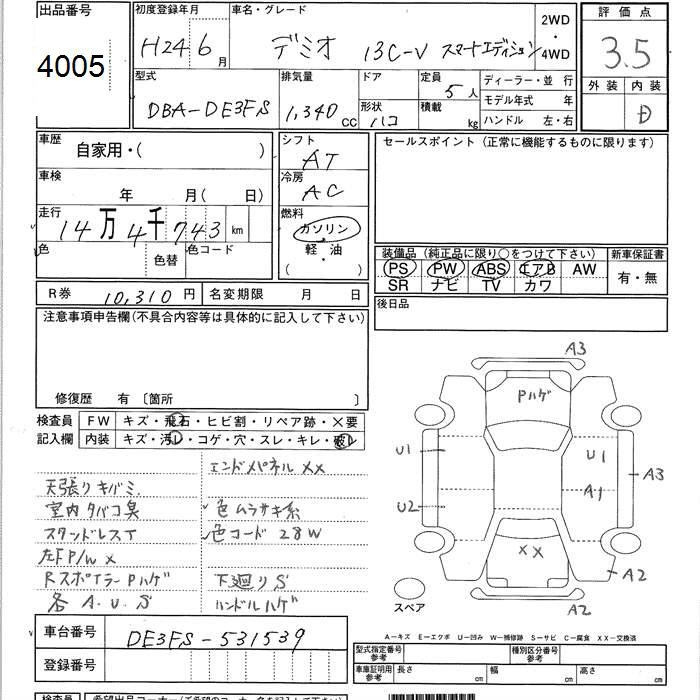 出品番号
4005
初度登録年月
H24 6月
車名・グレード
デミオ 13C-V スマートエディション
2WD
・
4WD
評価点
3.5
外装 内装
D
型式
DBA-DE3FS
排気量
1,340 CC
ドア
形状
ハコ
定員
5人
積載
kg
ディーラー・並行
モデル年式 年
ハンドル 左・右
車歴
自家用・( )
車検
年 月( 日)
走行
14万4千743km
色
色替
色コード
シフト
AT
冷房
AC
燃料
ガソリン
・
軽・油
( )
セールスポイント(正常に機能するものに限ります)
装備品(純正品に限り○をつけて下さい)
PS PW ABS エアB AW
SR ナビ TV カワ
新車保証書
有・無
後日品
R券 10,310円
名変期限 月 日
注意事項申告欄(不具合内容等は具体的に記入して下さい)
修復歴 有〔箇所 〕
検査員
記入欄
FW キズ・飛石・ヒビ割・リペア跡・×要
内装 キズ・汚レ・コゲ・穴・スレ・キレ・破レ
エンドメパネル XX
天張りキバミ
室内タバコ臭
色ムラサキ系
スタンドレスT
色コード 28W
左F P/W ×
Rスポイラー Pハゲ
下廻りS
各 A.U.S
ハンドルハゲ
A3
Pハゲ
U1
U1
A3
A1
U2
XX
A2
A2
スペア
車台番号
DE3FS-531539
登録番号
A-キズ E-エクボ U-凹み W-補修跡 S-サビ C-腐食 XX-交換済
型式指定番号
参考
種別区分番号
参考
車庫証明用
参考
長さ
cm
幅
cm
高さ
cm